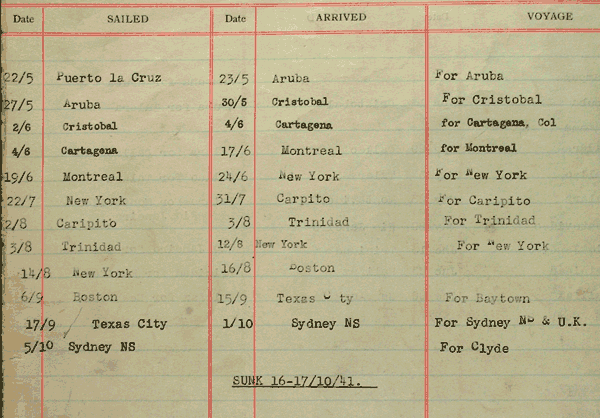 Date SAILED Date ARRIVED VOYAGE
22/5 Puerto la Cruz 23/5 Aruba For Aruba
27/5 Aruba 30/5 Cristobal For Cristobal
2/6 Cristobal 4/6 Cartagena for Cartagena, Col
4/6 Cartagena 17/6 Montreal for Montreal
19/6 Montreal 24/6 New York For New York
22/7 New York 31/7 Carpito For Caripito
2/8 Caripito 3/8 Trinidad For Trinidad
3/8 Trinidad 12/8 New York For New York
14/8 New York 16/8 Boston
6/9 Boston 15/9 Texas City For Baytown
17/9 Texas City 1/10 Sydney NS For Sydney NS & U.K.
5/10 Sydney NS For Clyde
SUNK 16-17/10/41.